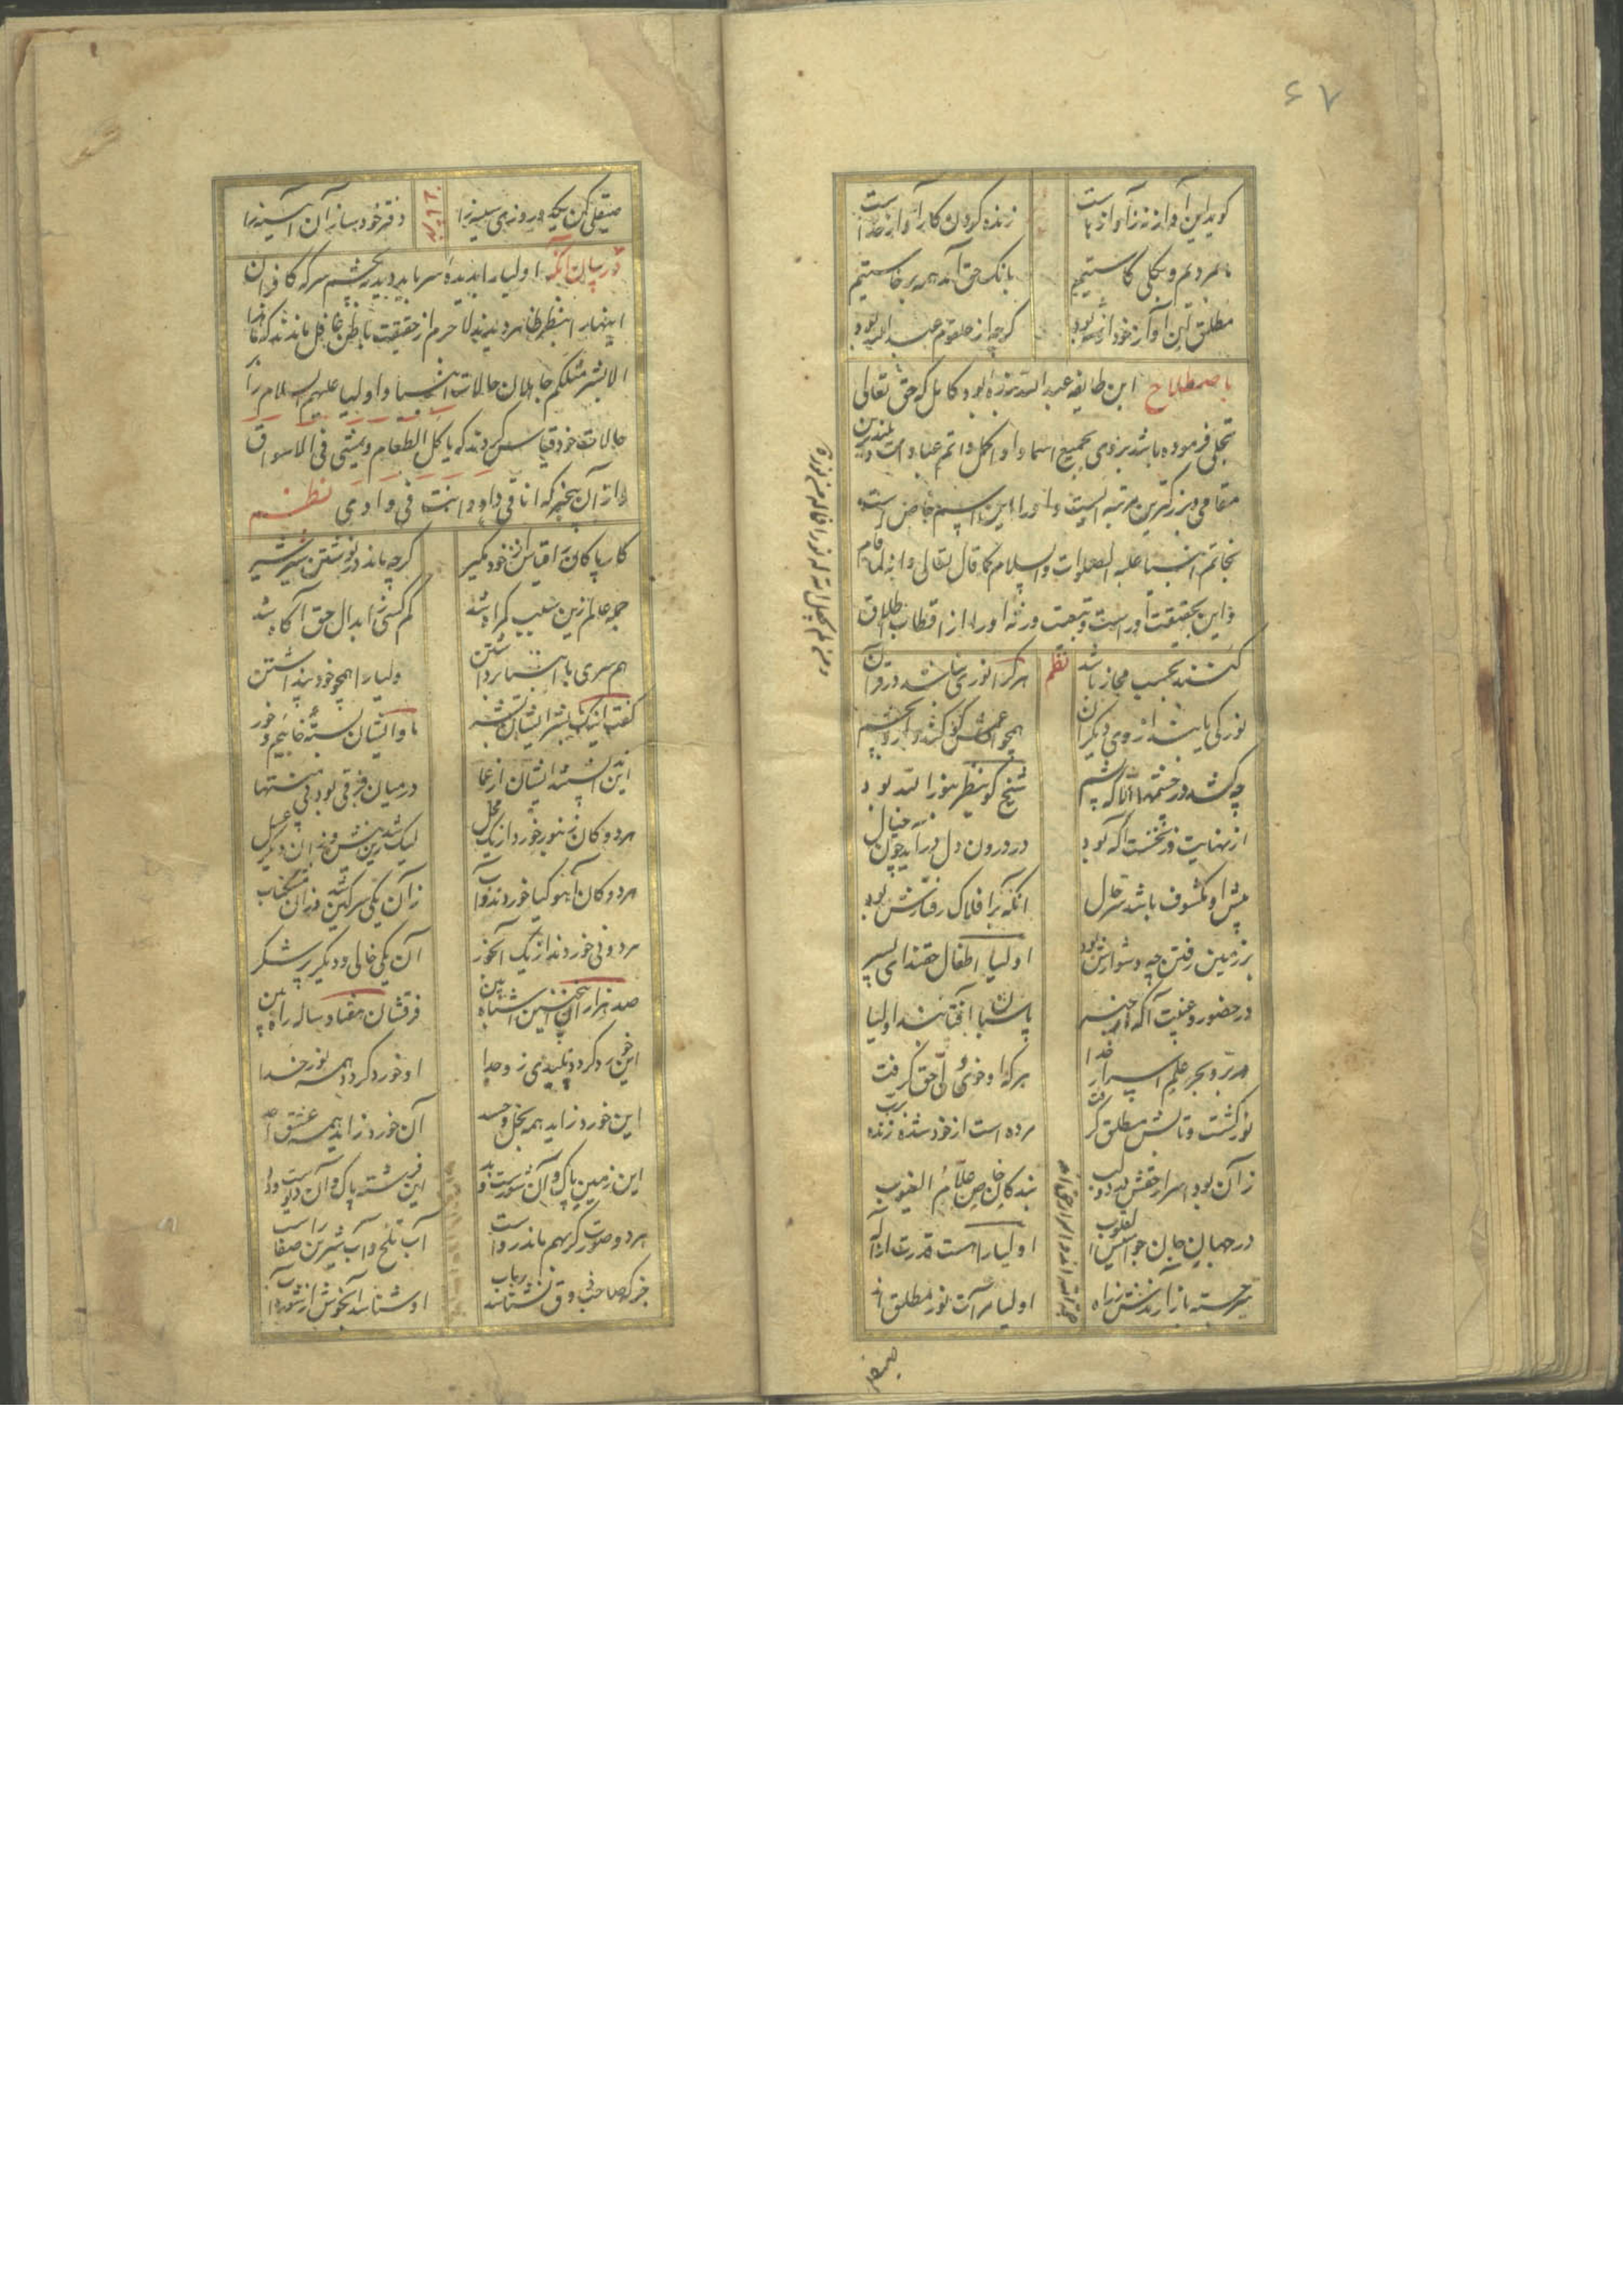 ۶۷
گوید این آواز ز آواها جداست زنده کردن کار آواز خداست
ما بمردیم و بکلی کاستیم بانک حق آمد همه برخاستیم
مطلق این آواز خود از شه بود کرچه از حلقوم عبد الله بود
باصطلاح این طایفه عبد الله بنده بود کامل که حق تعالی
تجلی فرموده باشد بر وی بجمیع اسما و او اکمل و اتم عباد است و بلندترین
مقامی و بزرکترین مرتبه ایست و او را این اسم خاص است
بخاتم انبیا علیه الصلوات والسلام کما قال تعالی وانه لما قام
و این بحقیقت او راست و بتبعیت ورثه او را از اقطاب اطلاق
کنند بحسب مجاز باشد نظم هر کرا نوری نباشد در قران
نور کی یابند از وی دیگران همچو اعمش کو کند داروی چشم
چه کشد در چشمها الا که یشم شیخ کو ینظر بنور الله بود
از نهایت وز نخست آکه بود در درون دل در آید چون خیال
پیش او مکشوف باشد سر حال آنکه بر افلاک رفتارش بود
بر زمین رفتن چه دشوارش بود اولیا اطفال حقند ای پسر
در حضور و غیبت آکه با خبر پاسبان آفتابند اولیا
در بر و بحر علم اسرار خدا هر که او خوی حق گرفت
نور کشت و تابش مطلق گرفت مرده است از خود شده زنده برب
زان بود اسرار حقش در دو لب بندکان خاص علام الغیوب
در جهان جان جواسیس القلوب اولیا را هست قدرت از اله
تیر جسته باز آرندش ز راه اولیا مرآت نور مطلق اند
صیقلی کن یکدو روزی سینه را دفتر خود ساز آن آیینه را
در بیان آنکه اولیا را بدیده سر باید دید نه بچشم سر که کافران
اینها را بنظر ظاهر دیدند لا جرم از حقیقت باطن غافل ماندند که ما هذا
الا بشر مثلکم جاهلان حالات انبیا و اولیا علیهم السلام را بر
حالات خود قیاس کردند که یاکل الطعام و یمشی فی الاسواق
و از آن بیخبر که انا فی واد و انت فی وادی نظم
کار پاکان را قیاس از خود مگیر کرچه ماند در نوشتن شیر شیر
جمله عالم زین سبب کمراه شد کم کسی ز ابدال حق آکاه شد
همسری با انبیا برداشتن اولیا را همچو خود پنداشتن
گفت اینک ما بشر ایشان بشر ما و ایشان بسته خوابیم و خور
این ندانستند ایشان از عما در میان فرقی بود بی منتها
هر دو کان زنبور خورد از یک محل لیک شد زین نیش و زان دیگر عسل
هر دو کان آهو کیا خوردند و آب زان یکی سرکین شد و زان مشکناب
هر دو نی خوردند از یک آبخور آن یکی خالی و دیگر پر شکر
صد هزاران اینچنین اشباه بین فرقشان هفتاد ساله راه بین
این خورد گردد پلیدی زو جدا او خورد گردد همه نور خدا
این خورد زاید همه بخل و حسد آن خورد زاید همه عشق احد
این زمین پاک و آن شورست و بد این فرشته پاک و آن دیوست و دد
هر دو صورت گر بهم ماند رواست آب تلخ و آب شیرین را صفاست
جز که صاحب ذوق نشناسد بیاب او شناسد آب خوش از شوره آب